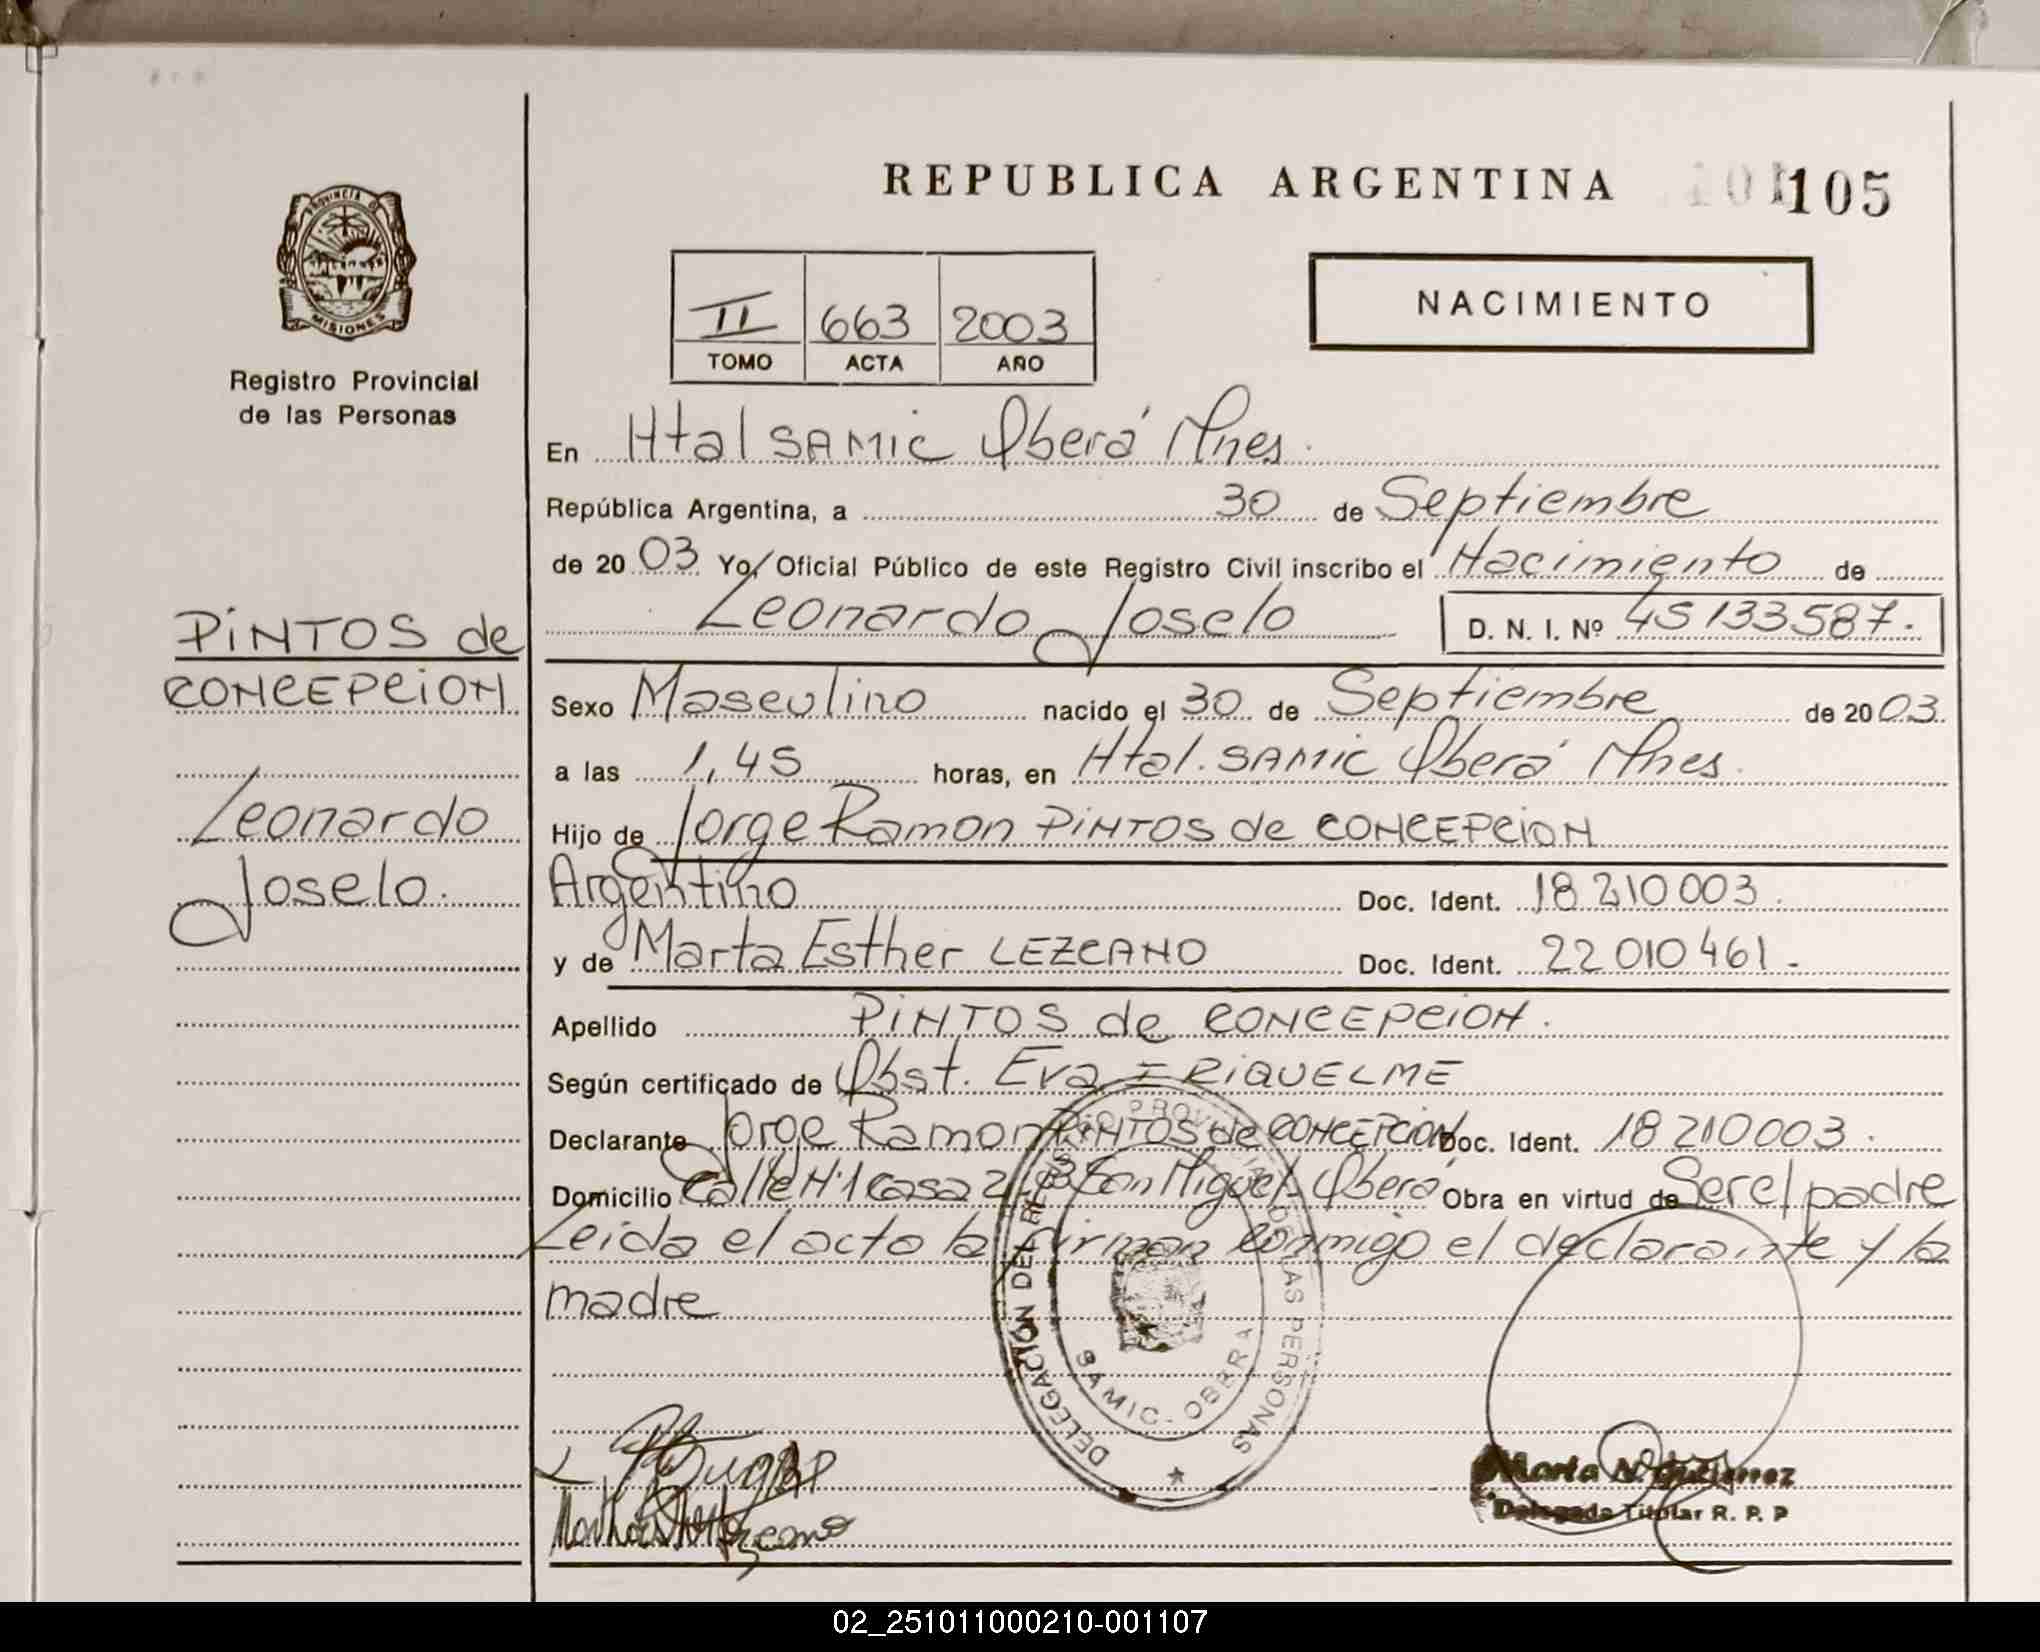 REPUBLICA ARGENTINA 105
PROVINCIA DE
MISIONES
Registro Provincial
de las Personas
NACIMIENTO
II 663 2003
TOMO ACTA AÑO
En Htal SAMIC Oberá Mnes.
República Argentina, a 30 de Septiembre
de 2003 Yo, Oficial Público de este Registro Civil inscribo el Nacimiento de
Leonardo Joselo D. N. I. Nº 45 133 587.
PINTOS de
CONCEPCION
Leonardo
Joselo.
Sexo Masculino nacido el 30 de Septiembre de 2003.
a las 1,45 horas, en Htal. SAMIC Oberá Mnes.
Hijo de Jorge Ramon PINTOS de CONCEPCION
Argentino Doc. Ident. 18 210 003.
y de Marta Esther LEZCANO Doc. Ident. 22 010 461.-
Apellido PINTOS de CONCEPCION.
Según certificado de Obst. Eva I RIQUELME
Declarante Jorge Ramon PINTOS de CONCEPCION Doc. Ident. 18 210 003.
Domicilio Calle Nº1 Casa San Miguel Oberá Obra en virtud de Ser el padre
Leida el acta la firman conmigo el declarante y la
madre
DELEGACIÓN DEL REGISTRO PROVINCIAL DE LAS PERSONAS
SAMIC - OBERA
Marta N. Gutierrez
Delegada Titular R. P. P
02_251011000210-001107